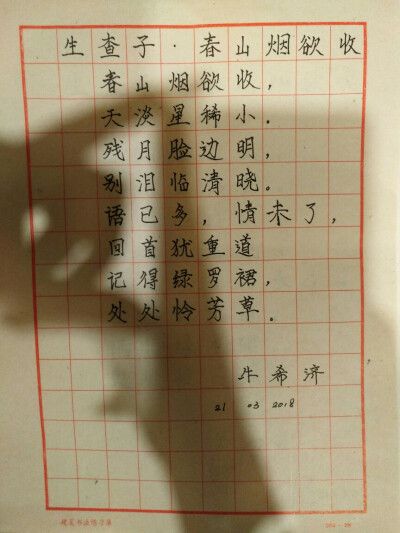 生查子·春山烟欲收
春山烟欲收，
天淡星稀小。
残月脸边明，
别泪临清晓。
语已多，情未了，
回首犹重道
记得绿罗裙，
处处怜芳草。
牛希济
21 03 2018
硬笔书法练习纸